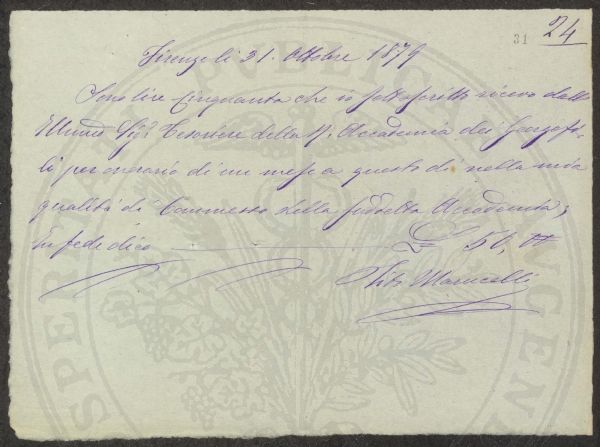 31 24
Firenze li 31. Ottobre 1879
Sono lire Cinquanta che io sottoscritto ricevo dall
Illmo Sigr. Tesoriere della R. Accademia dei Georgofi-
li per onorario di un mese a questo dì nella mia
qualità di Commesso della suddetta Accademia;
In fede dico £ 50,00
Marucelli